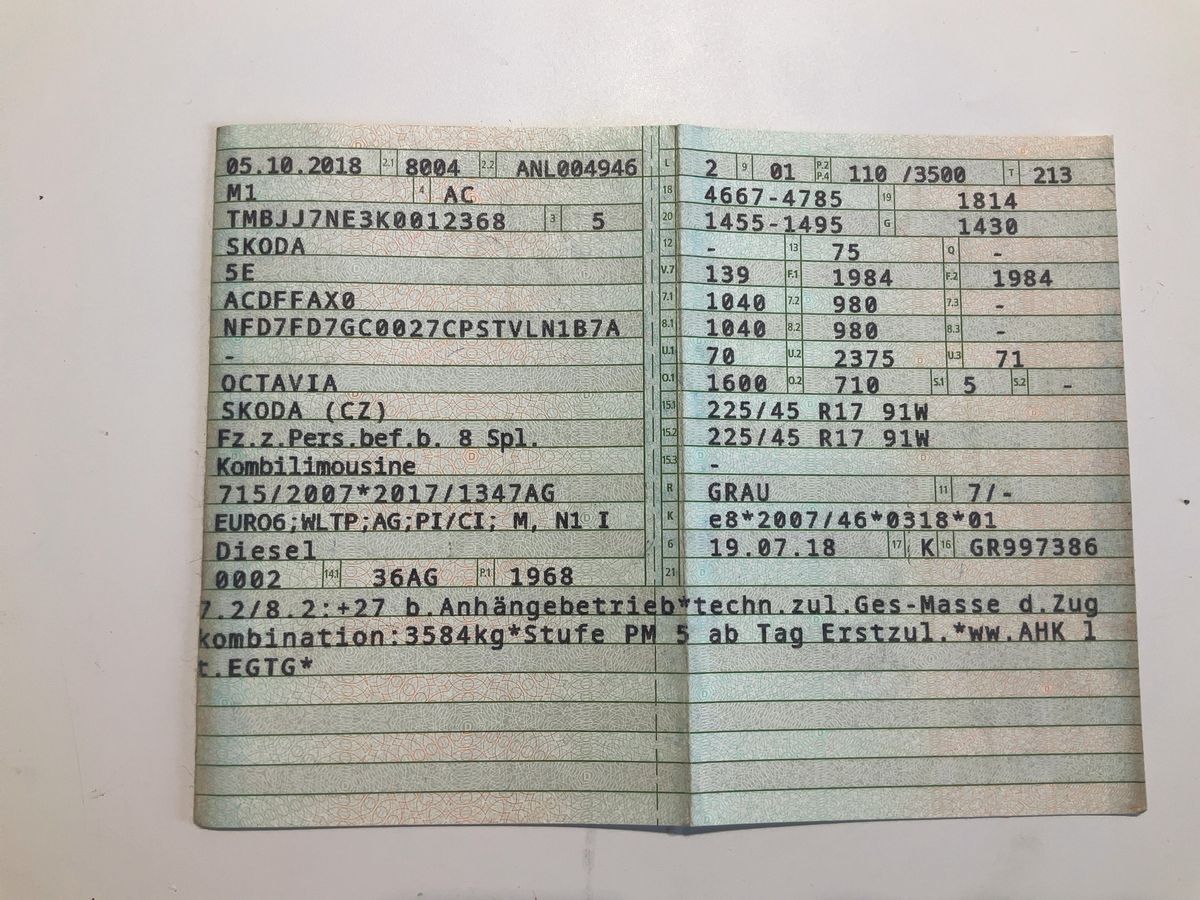 05.10.2018 2.1 8004 2.2 ANL004946
M1 4 AC
TMBJJ7NE3K0012368 3 5
SKODA
5E
ACDFFAX0
NFD7FD7GC0027CPSTVLN1B7A
-
OCTAVIA
SKODA (CZ)
Fz.z.Pers.bef.b. 8 Spl.
Kombilimousine
715/2007*2017/1347AG
EURO6;WLTP;AG;PI/CI; M, N1 I
Diesel
0002 14.1 36AG P.1 1968
L 2 9 01 P.2 P.4 110 /3500 T 213
18 4667-4785 19 1814
20 1455-1495 G 1430
12 - 13 75 Q -
V.7 139 F.1 1984 F.2 1984
7.1 1040 7.2 980 7.3 -
8.1 1040 8.2 980 8.3 -
U.1 70 U.2 2375 U.3 71
O.1 1600 O.2 710 S.1 5 S.2 -
15.1 225/45 R17 91W
15.2 225/45 R17 91W
15.3 -
R GRAU 11 7/-
K e8*2007/46*0318*01
6 19.07.18 17 K 16 GR997386
21
7.2/8.2:+27 b.Anhängebetrieb*techn.zul.Ges-Masse d.Zug
kombination:3584kg*Stufe PM 5 ab Tag Erstzul.*ww.AHK l
t.EGTG*